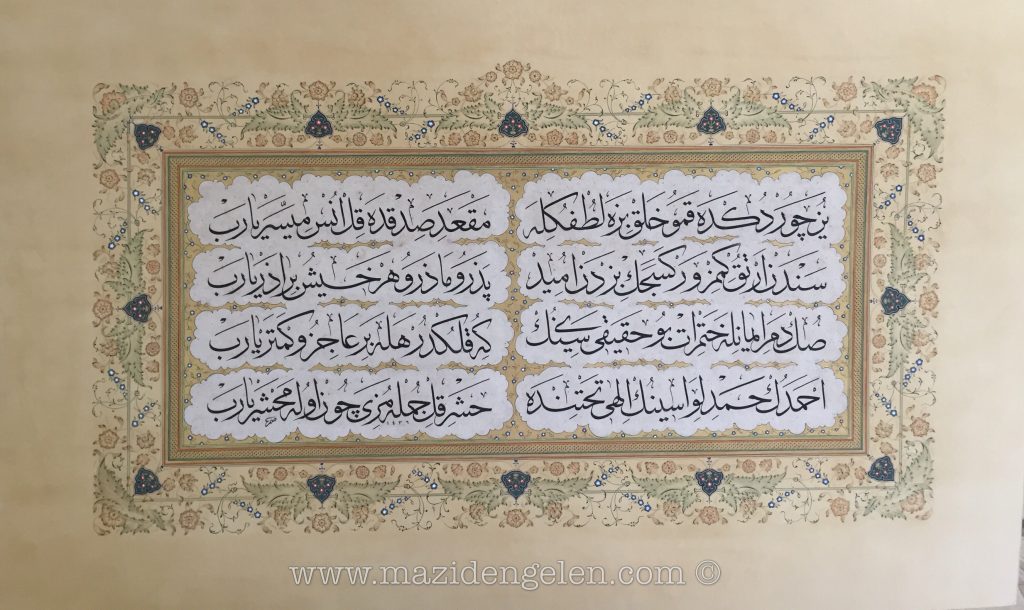 یُز چوُردُکده قمو خلق بزه لطفکله مقعدِ صدقده قل اُنس میسّر یارب
سندن ارتق کمز ور کسجك بزدن امید پدر و ماذر و هر خیش براذر یارب
صُلدم ایمانله ختم ات بو حقیقی سینك که قلکدر هله بر عاجز و کمتر یارب
احمدك حمد لواسینك الهی تحتنده حشر قل جمله مزی چون اوله محشر یارب
١٤٣٩
www.mazidengelen.com ©